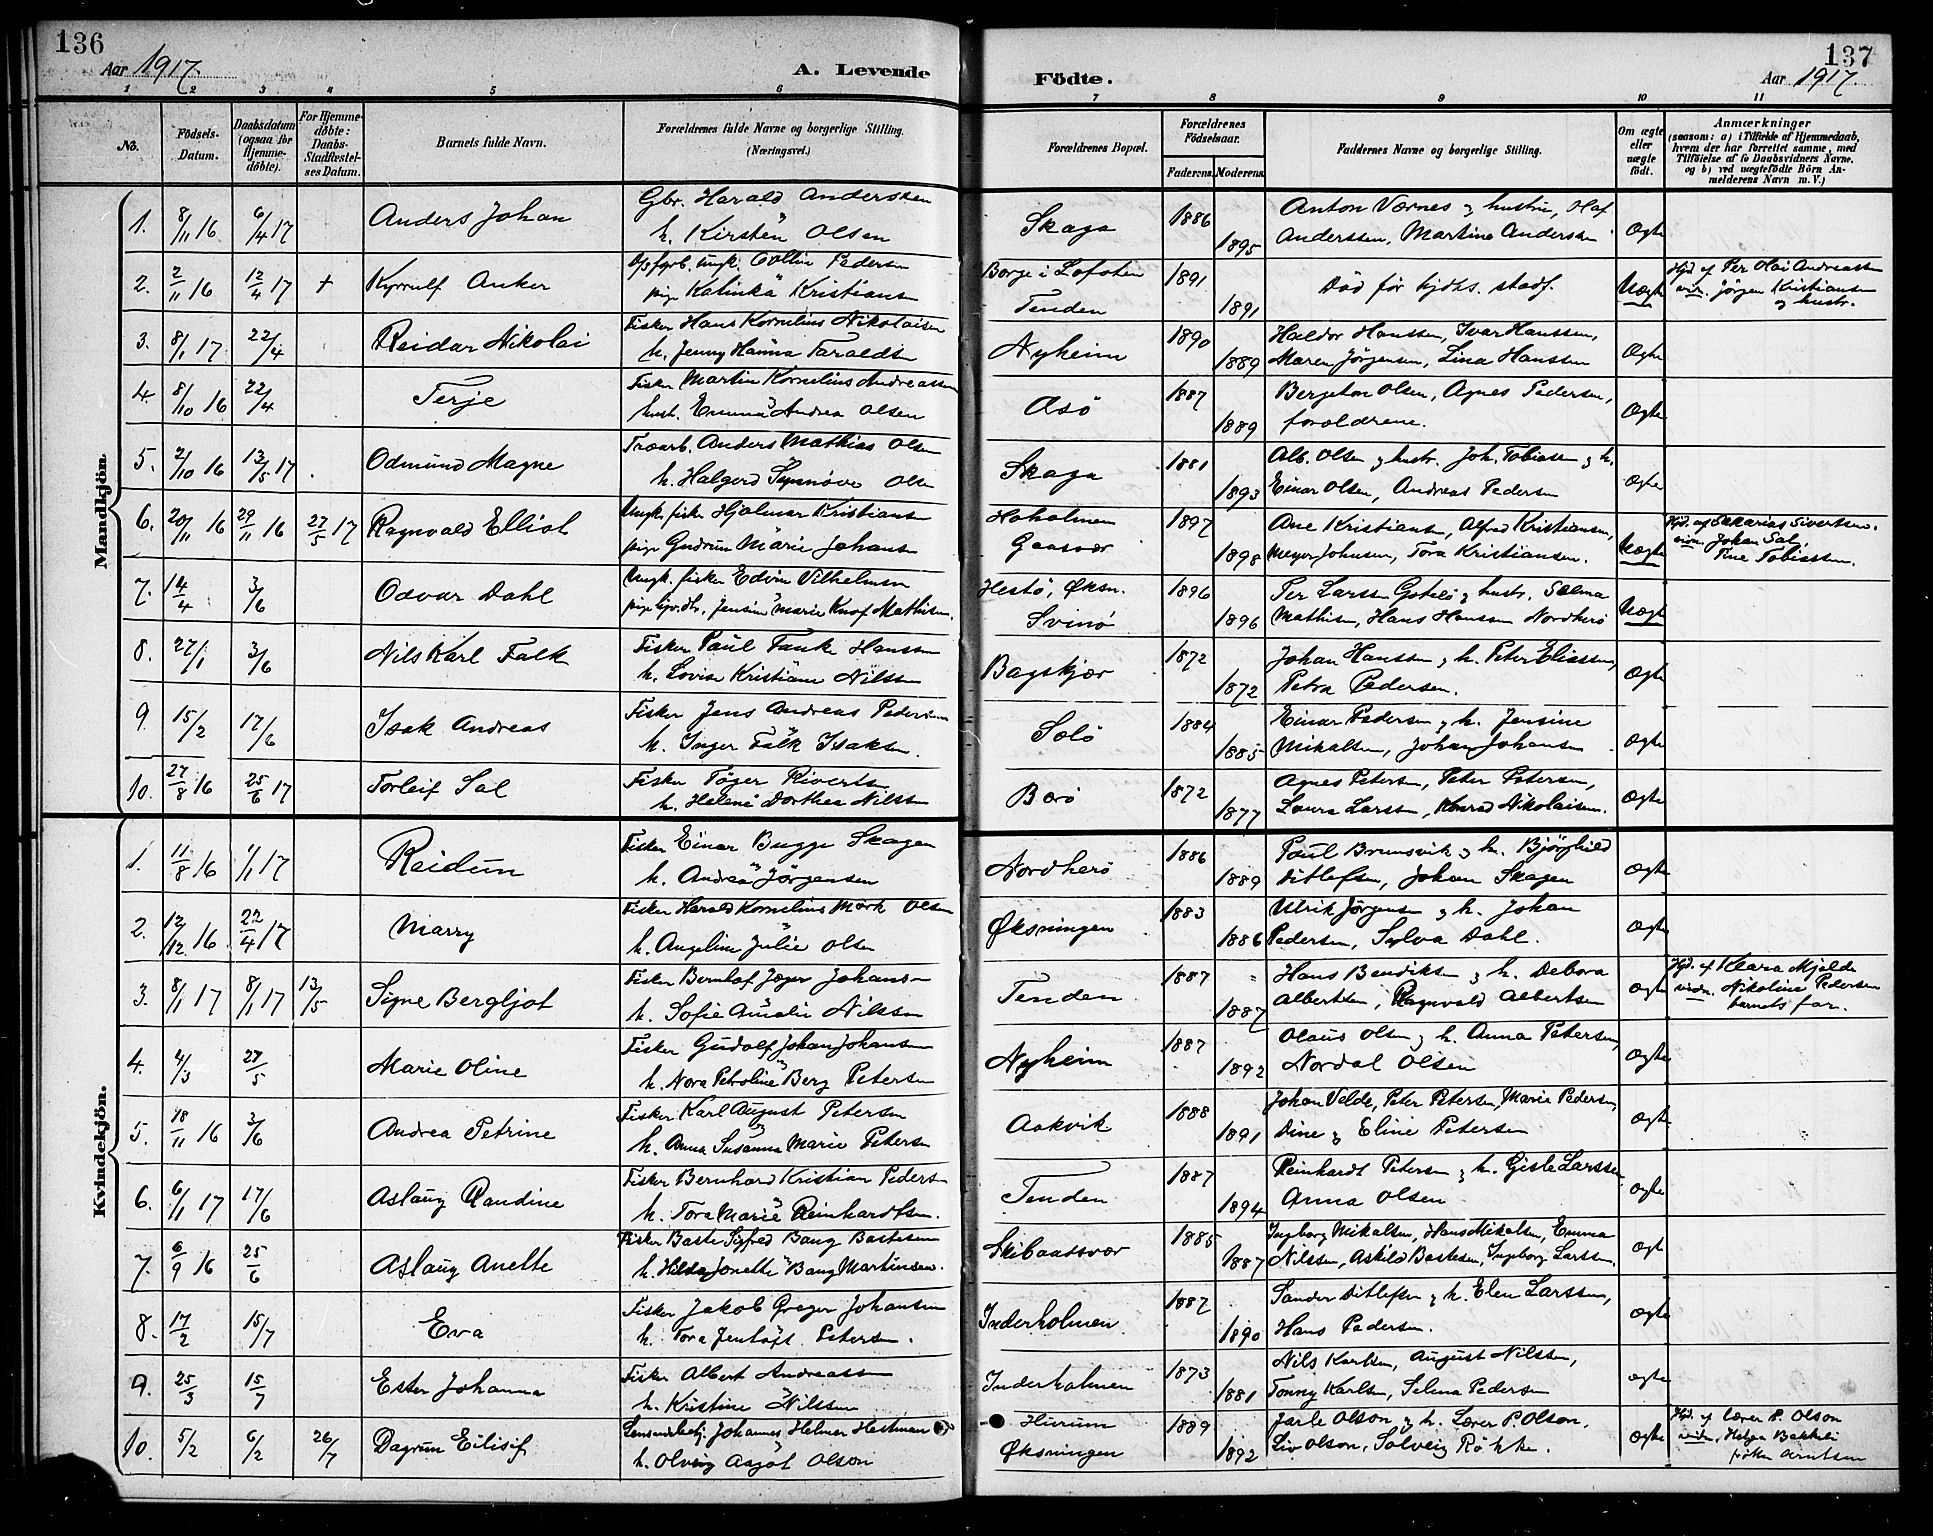 136
Aar 1917.
A. Levende
1 2 3 4 5 6
No.
Födsels-Datum.
Daabsdatum (ogsaa for Hjemmedøbte).
For Hjemmedøbte: Daabs-Stadfestelses Datum.
Barnets fulde Navn.
Forældrenes fulde Navne og borgerlige Stilling. (Næringsvei.)
Mandkjön
1. 8/11 16 6/4 17 Anders Johan Gbr. Harald Anderssen
h. Kirsten Olsen
2. 2/11 16 12/4 17 + Kyrrulf Anker ungk. Collin Pedersen
pige Katinka Kristiansen
3. 8/1 17 22/4 Reidar Nikolai Fisker Hans Kornelius Nikolaisen
h. Jenny Hanna Taraldsen
4. 8/10 16 22/4 Terje Fisker Martin Kornelius Andreassen
hust. Emma Andrea Olsen
5. 2/10 16 13/5 17 Odmund Magne Træarb. Anders Mathias Olsen
h. Halgerd Synnøve Olsen
6. 20/11 16 29/11 16 27/5 17 Ragnvald Elliot Ungk. fisker Hjalmar Kristiansen
pige Gudrun Marie Johansen
7. 14/4 3/6 Odvar Dahl Ungk. fisker Edvin Vilhelmsen
Jensine Marie Knof Mathisen.
8. 27/1 3/6 Nils Karl Falk Fisker Paul Fanke Hanssen
h. Lovise Kristiane Nilssen
9. 15/2 17/6 Isak Andreas Fisker Jens Andreas Pedersen
h. Inger Falk Isaksen.
10. 27/8 16 25/6 17 Torleif Sal Fisker Töger Sivertsen
h. Helene Dorthea Nilssen
Kvindekjön.
1. 11/8 16 1/1 17 Reidun Fisker Einar Bugge Skagen
h. Andrea Jörgensen
2. 12/12 16 22/4 17 Marry Fisker Harald Kornelius Mörk Olsen
h. Angeline Julie Olsen
3. 8/1 17 8/1 17 13/5 Signe Bergljot Fisker Bernhof Jæger Johansen
h. Sofie Amalie Nilssen
4. 4/3 27/5 Marie Oline Fisker Gudolf Johan Johansen
h. Nora Petroline Berg Petersen
5. 18/11 16 3/6 Andrea Petrine Fisker Karl August Petersen
h. Anna Susanna Marie Petersen
6. 6/1 17 17/6 Aslaug Randine Fisker Bernhard Kristian Pedersen
h. Tora Marie Reinhardtsen.
7. 6/9 16 25/6 Aslaug Anette Fisker Baste Sigfred Bang Bastesen
h. Hilda Jonette Bang Martinsen.
8. 17/2 15/7 Eva Fisker Jakob Greger Johansen
h. Tora Jentoft Petersen.
9. 25/3 15/7 Ester Johanna Fisker Albert Andreassen
h. Kristine Nilssen
10. 5/2 6/2 26/7 Dagrun Eilisif Lensmandsbetj. Johannes Helmer Hestmann
h. Olveig Aagöt Olson
137
Födte.
Aar 1917.
7 8 9 10 11
Forældrenes Bopæl.
Forældrenes Födselsaar.
Faderens. Moderens.
Faddernes Navne og borgerlige Stilling.
Om ægte eller uægte født.
Anmærkninger
(saasom: a) i Tilfælde af Hjemmedaab, hvem der har forrettet samme, med Tilföielse af to Daabsvidners Navne, og b) ved uægtefödte Börn Anmelderens Navn m. V.)
Skaga 1886 1895 Anton Værnes & hustru, Olaf
Anderssen, Martine Anderssen Ægte
Borge i Lofoten
Tenden 1891 1891 Död för hjdbs. stadf. Uægte Hjd. af Per Olai Andreassen
vidn. Jörgen Kristiansen
og hustr.
Nyheim 1890 1889 Haldor Hanssen, Ivar Hanssen,
Maren Jörgensen, Lina Hanssen Ægte
Asö 1887 1889 Bergeton Olsen, Agnes Pedersen,
foreldrene. Ægte
Skaga 1881 1893 Alb. Olsen & hustr. Joh. Tobiasen & h.
Einar Olsen, Andreas Pedersen Ægte
Haholmen
Gaasvær 1897 1898 Ane Kristiansen, Alfred Kristiansen,
Meyer Johnsen, Tora Kristiansen. Uægte Hjd. af Sakarias Sivertsen.
vidn. Johan Sal,
Tine Tobiassen.
Hestö, Øksn.
Svinö 1896 1896 Per Larssen & hustr. Selma
Mathisen, Hans Hanssen Nordherö Uægte
Bagskjær 1872 1872 Johan Hanssen & h. Peter Eliassen,
Petra Pedersen. Ægte
Solö 1884 1885 Einar Pedersen & h. Jensine
Mikalsen, Johan Johansen Ægte
Borö 1872 1877 Agnes Petersen, Peter Petersen,
Laura Larssen, Konrad Nikolaisen. Ægte
Nordherö 1886 1889 Paul Brunsvik & h. Björghild
Ditlefsen, Johan Skagen Ægte
Øksningen 1883 1886 Ulrik Jörgensen & h. Johan
Pedersen, Sylva Dahl. Ægte
Tenden 1887 1887 Hans Bendiksen & h. Debora
Albertsen, Ragnvald Albertsen Ægte Hjd. af Klara Mjelde
vidn. Nikoline Pedersen
barnets far.
Nyheim 1887 1892 Olaus Olsen & h. Anna Petersen,
Nordal Olsen Ægte
Aakvik 1888 1891 Johan Velde, Peter Petersen, Marie Pedersen,
Dine & Eline Petersen Ægte
Tenden 1887 1894 Reinhardt Petersen & h. Gisle Larssen
Anna Olsen Ægte
Skibaatsvær 1885 1887 Ingborg Mikalsen, Hans Mikalsen, Emma
Nilssen, Askild Bastesen, Ingeborg Larssen. Ægte
Inderholmen 1887 1890 Sander Ditlefsen & h. Elen Larssen,
Hans Pedersen. Ægte
Inderholmen 1873 1881 Nils Karlsen, August Nilssen,
Tonny Karlsen, Selma Pedersen Ægte
Hierum
Øksningen 1889 1892 Jarle Olson & h. Lærer P. Olson,
Liv Olson, Solveig Røkke. Ægte Hjd. af lærer P. Olson
vidn. Helga Bakkeli
frøken Arntsen